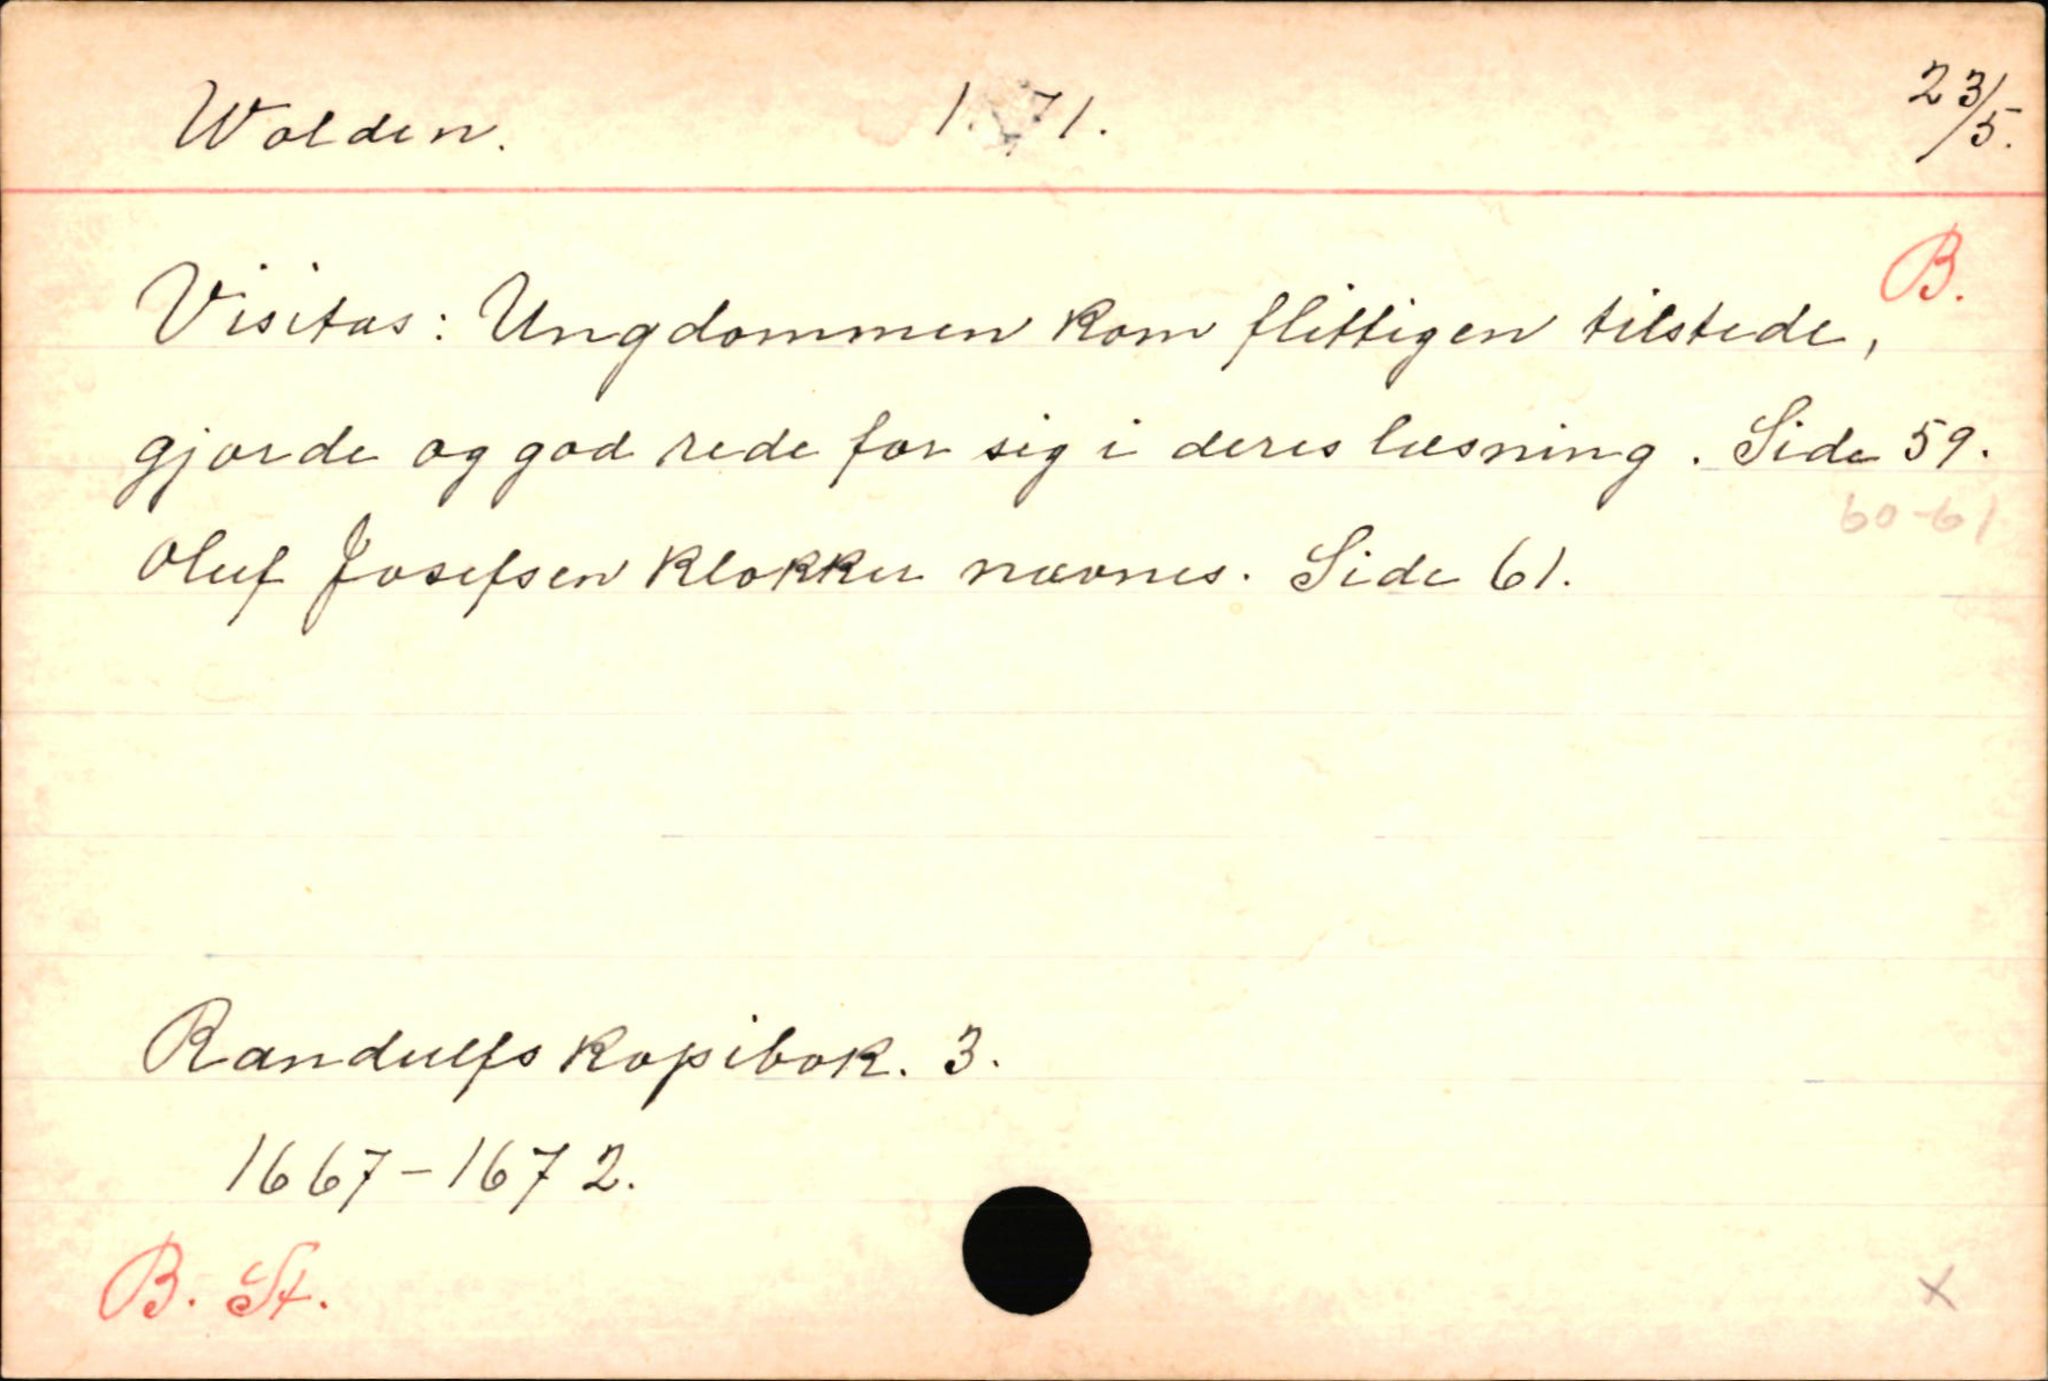 Wolden. 1671. 23/5.
B.
Visitas: Ungdommen kom flittigen tilstede,
gjorde og god rede for sig i deres læsning. Side 59.
60-61
Oluf Josefsen klokker nævnes. Side 61.
Randulfs kopibok. 3.
1667-1672.
B. St. x